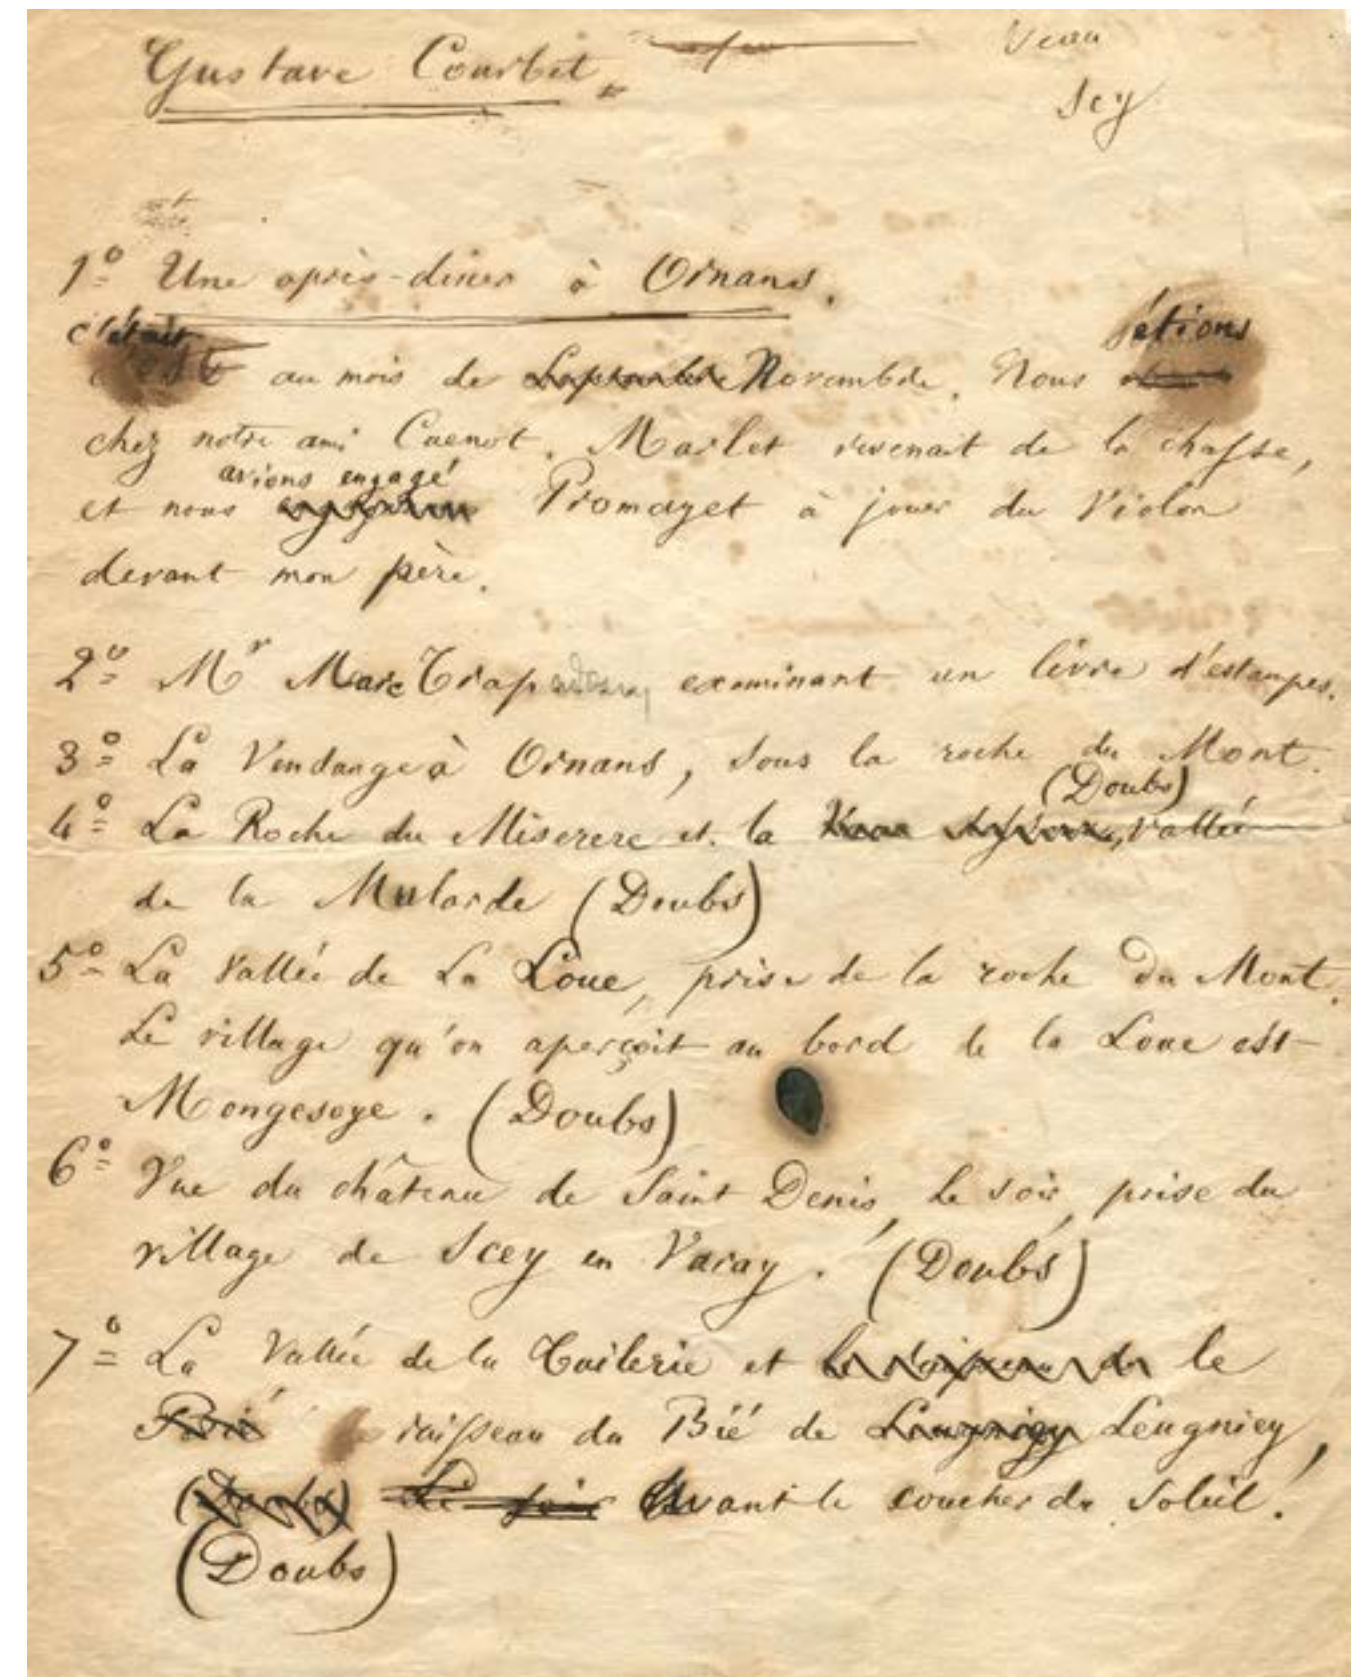 Gustave Courbet.
Scey
1º Une après-diner à Ornans.
c'était étions
au mois de Novembre. Nous
chez notre ami Cuenot. Marlet revenait de la chasse,
avions engagé
et nous Promayet à jouer du Violon
devant mon père.
2º Mr Marc Trapadoux examinant un livre d'estampes.
3º La Vendange à Ornans, sous la roche du Mont.
(Doubs)
4º La Roche du Miserere et la Vallée
de la Mularde (Doubs)
5º La Vallée de La Loue, prise de la roche Du Mont.
Le village qu'on aperçoit au bord de la Loue est
Mongesoye. (Doubs)
6º Vue du château de Saint Denis, le soir, prise du
village de Scey en Varay. (Doubs)
7º La Vallée de la Tuilerie et le
ruisseau du Bié de Leugniey,
Avant le coucher du Soleil.
(Doubs)